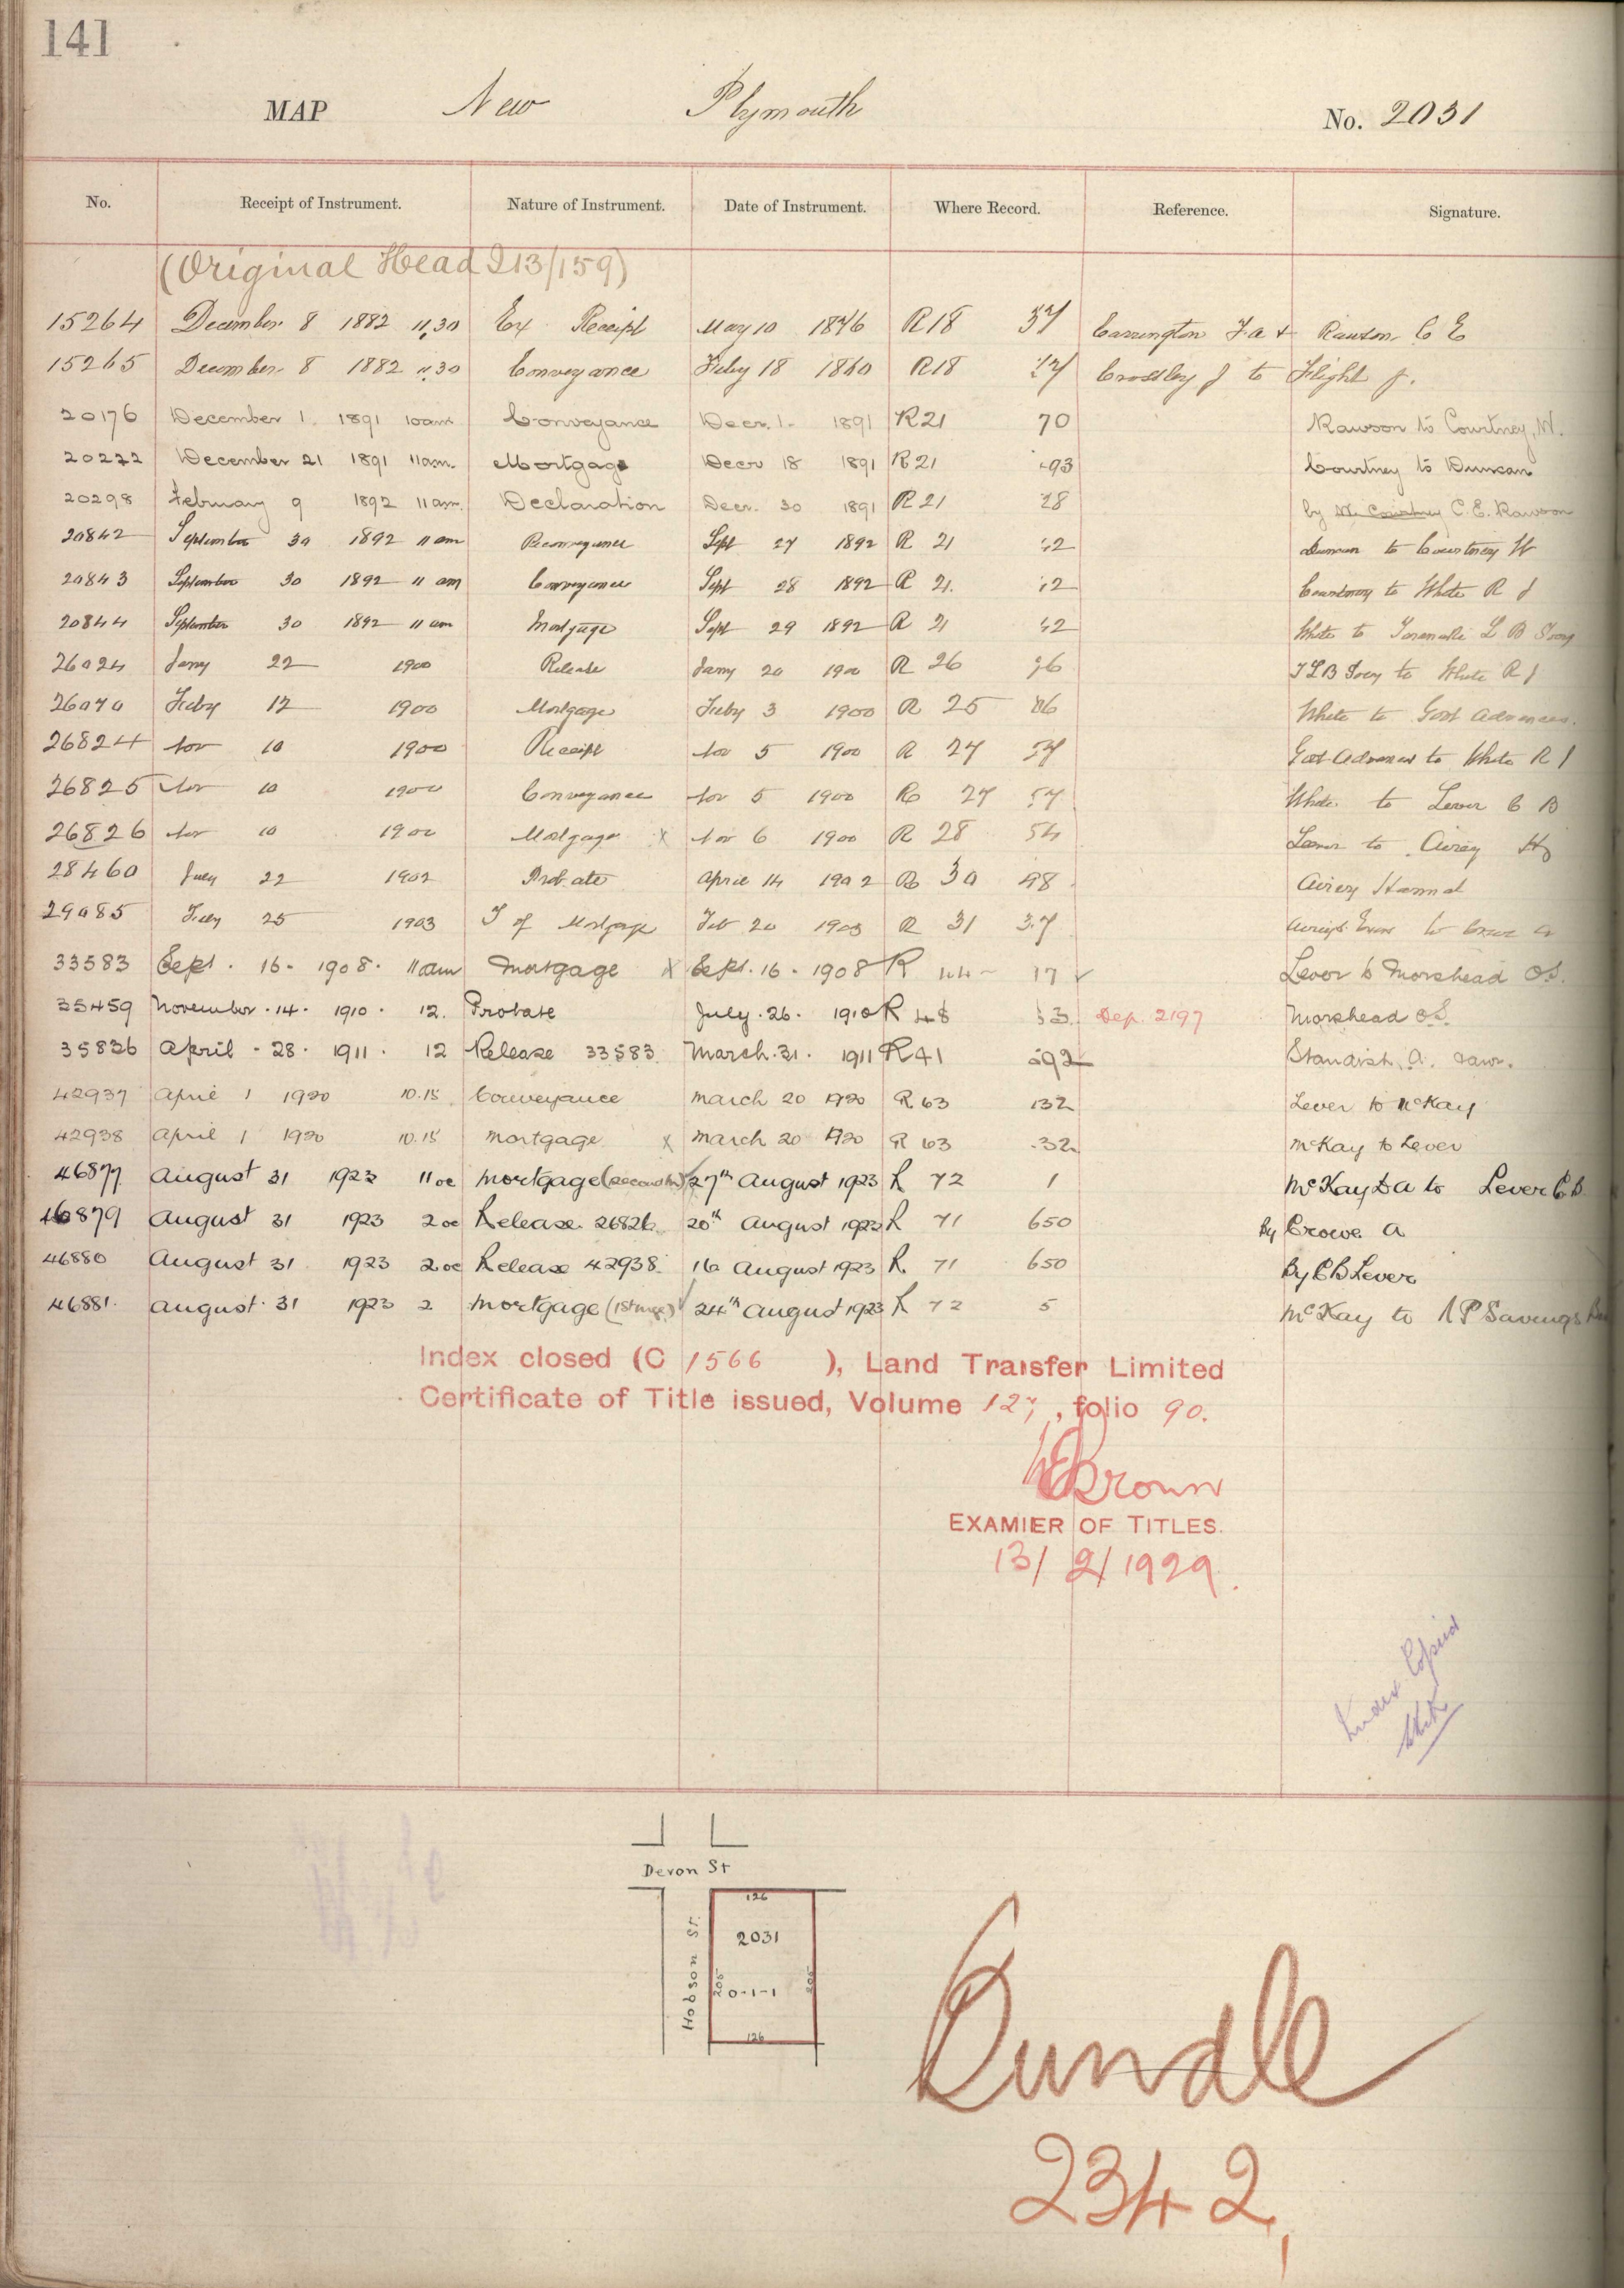 141
MAP New Plymouth No. 2031
No. Receipt of Instrument. Nature of Instrument. Date of Instrument. Where Record. Reference. Signature.
(Original Head I 13/159)
15264 December 8 1882 11.30 Ex Receipt May 10 1876 R18 37 Carrington F.A & Rawson C E
15265 December 8 1882 11.30 Conveyance Feby 18 1860 R18 Crossley J to Flight J.
20176 December 1. 1891 10am Conveyance Decr. 1. 1891 R21 70 Rawson to Courtney, W.
20222 December 21 1891 11am. Mortgage Decr 18 1891 R21 93 Courtney to Duncan
20298 February 9 1892 11am. Declaration Decr. 30 1891 R21 28 by W. Courtney C. E. Rawson
20842 September 30 1892 11 am Reconveyance Sept 27 1892 R 21 Duncan to Courtney W
20843 September 30 1892 11 am Conveyance Sept 28 1892 R 21. Courtney to White R J
20844 September 30 1892 11 am Mortgage Sept 29 1892 R 21 White to Taranaki L B Socy
26024 Jany 22 1900 Release Jany 20 1900 R 26 T L B Socy to White R J
26070 Feby 12 1900 Mortgage Feby 3 1900 R 25 White to Govt Advances.
26824 Nov 10 1900 Receipt Nov 5 1900 R 27 Govt Advances to White R J
26825 Nov 10 1900 Conveyance Nov 5 1900 R 27 White to Lever C B
26826 Nov 10 1900 Mortgage x Nov 6 1900 R 28 54 Lever to Airey H
28460 July 22 1902 Probate April 14 1902 R 30 98 Airey Hannah
29085 July 25 1903 T of Mortgage Feb 20 1903 R 31 37
33583 Sept. 16. 1908. 11am Mortgage x Sept. 16. 1908 R 44 17 Lever to Morshead O.S.
35459 November. 14. 1910. 12. Probate July. 26. 1910 R 48 Dep. 2197 Morshead O.S.
35836 April. 28. 1911. 12 Release 33583. March. 31. 1911 R 41 Standish, A.
42937 April 1 1920 10.15 Conveyance March 20 1920 R 63 132 Lever to McKay
42938 April 1 1920 10.15 Mortgage x March 20 1920 R 63 McKay to Lever
46877 August 31 1923 11 oc Mortgage (second) 27th August 1923 R 72 1 McKay D A to Lever C B
46879 August 31 1923 2 oc Release 26826 20th August 1923 R 71 650 By Crowe A
46880 August 31 1923 2 oc Release 42938 16 August 1923 R. 71 650 By C B Lever
46881. August. 31 1923 2 Mortgage (1st mge) 24th August 1923 R 72 5 McKay to N P Savings
Index closed (C 1566 ), Land Transfer Limited
Certificate of Title issued, Volume 127, folio 90.
Brown
EXAMIER OF TITLES.
13/2/1929.
Index Copied
Devon St
126
2031
Hobson St.
205
0-1-1
205
126
Rundle
2342